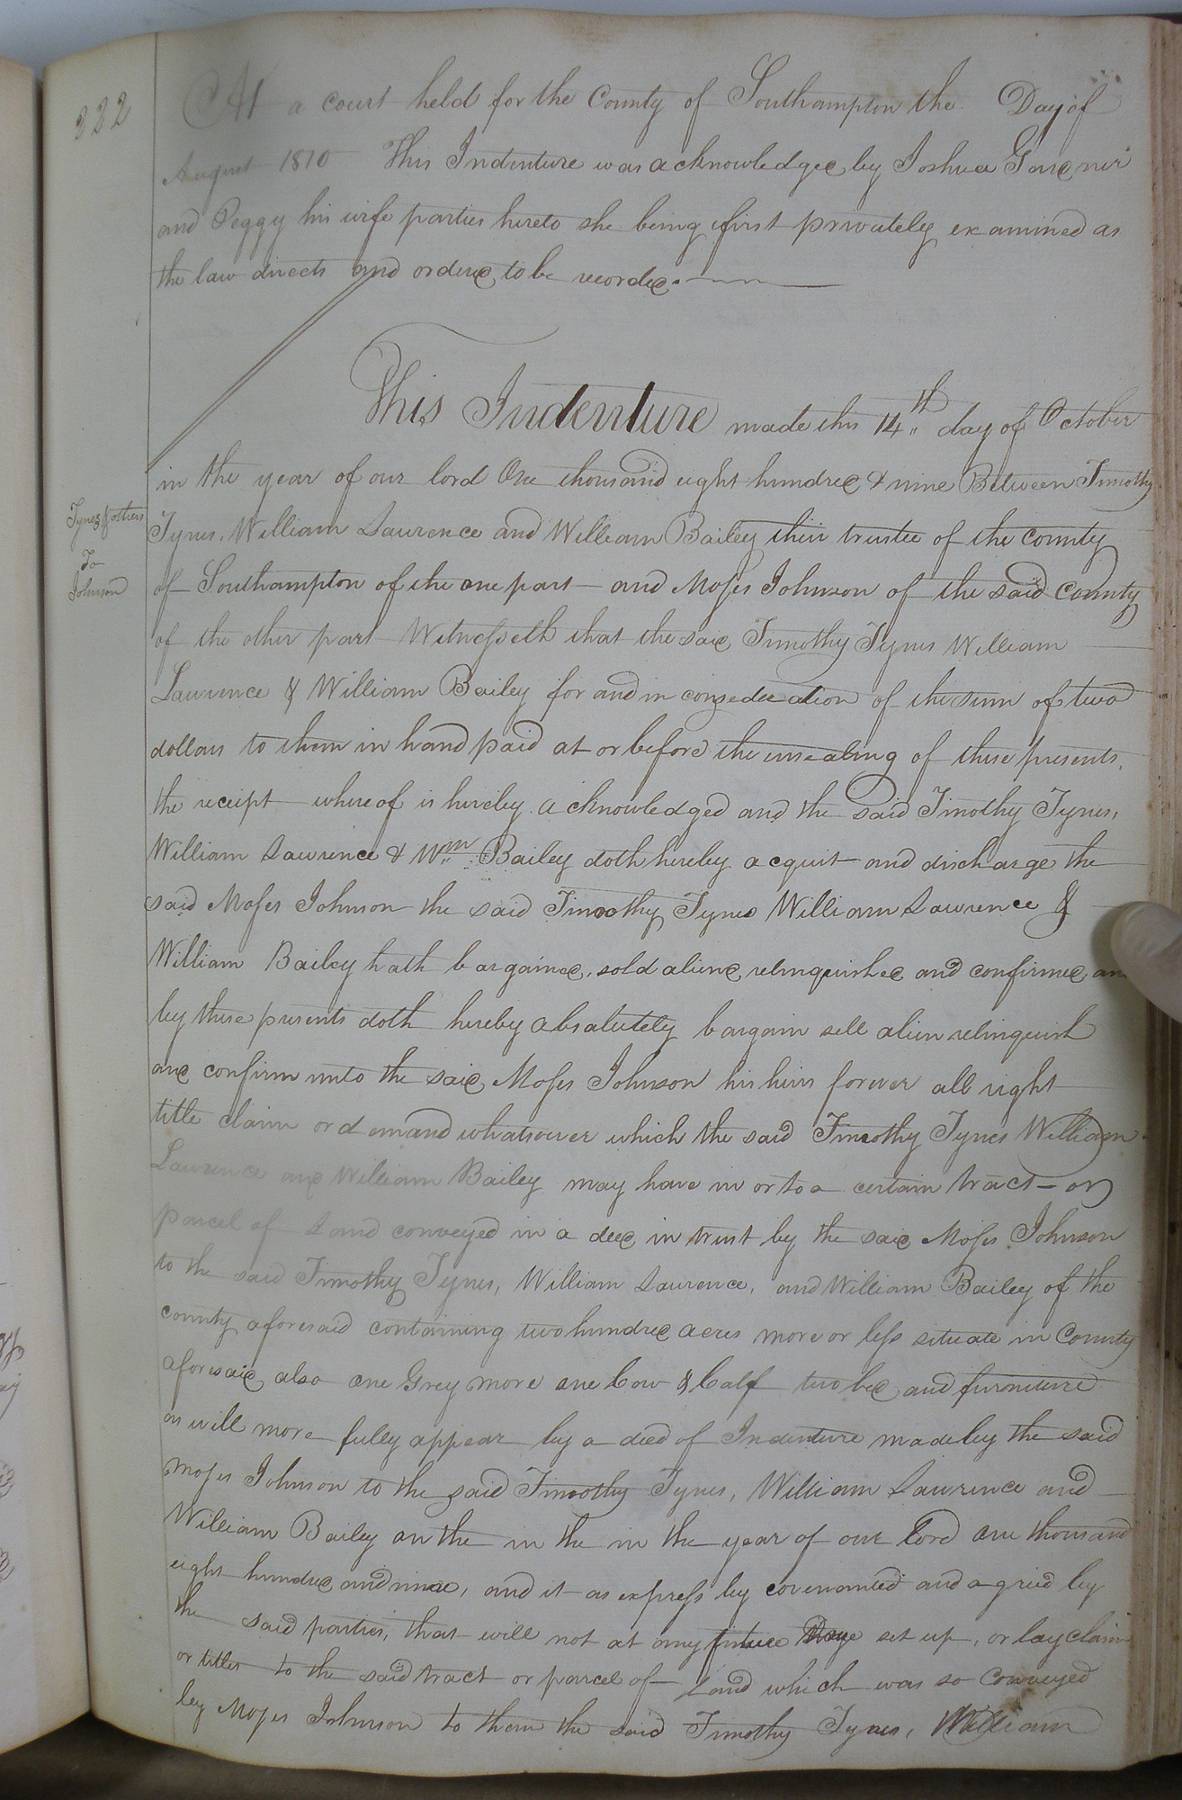 322
At a court held for the County of Southampton the Day of
August 1810 This Indenture was acknowledged by Joshua
and Peggy his wife parties hereto she being first privately examined as
the law directs and ordered to be recorded.
This Indenture made this 14th day of October
in the year of our lord One thousand eight hundred & nine Between Timothy
Tynes & others
To
Johnson
Tynes, William Lawrence and William Bailey their trustee of the county
of Southampton of the one part and Moses Johnson of the said County
of the other part Witnesseth that the said Timothy Tynes William
Lawrence & William Bailey for and in consederation of the sum of two
dollars to them in hand paid at or before the unsealing of these presents,
the receipt whereof is hereby acknowledged and the said Timothy Tynes,
William Lawrence & Wm Bailey doth hereby acquit and discharge the
said Moses Johnson the said Timothy Tynes William Lawrence &
William Bailey hath bargained, sold aliened, relinquished and confirmed an
by these presents doth hereby absalutely bargain sell alien relinquish
and confirm unto the said Moses Johnson his heirs forever all right
title claim or demand whatsoever which the said Timothy Tynes William
Lawrence and William Bailey may have in or to a certain tract or
parcel of Land conveyed in a deed in trust by the said Moses Johnson
to the said Timothy Tynes, William Lawrence, and William Bailey of the
county aforesaid containing two hundred acres more or less situate in County
aforesaid also one Grey more one Cow & Calf two bed and furniture
as will more fully appear by a deed of Indenture made by the said
Moses Johnson to the said Timothy Tynes, William Lawrence and
William Bailey on the in the in the year of our Lord one thousand
eight hundred and nine, and it as express by covenanted and agreed by
the said parties, that will not at any future Daye set up, or lay claim
or titles to the said tract or parcel of Land which was so Conveyed
by Moses Johnson to them the said Timothy Tynes, William